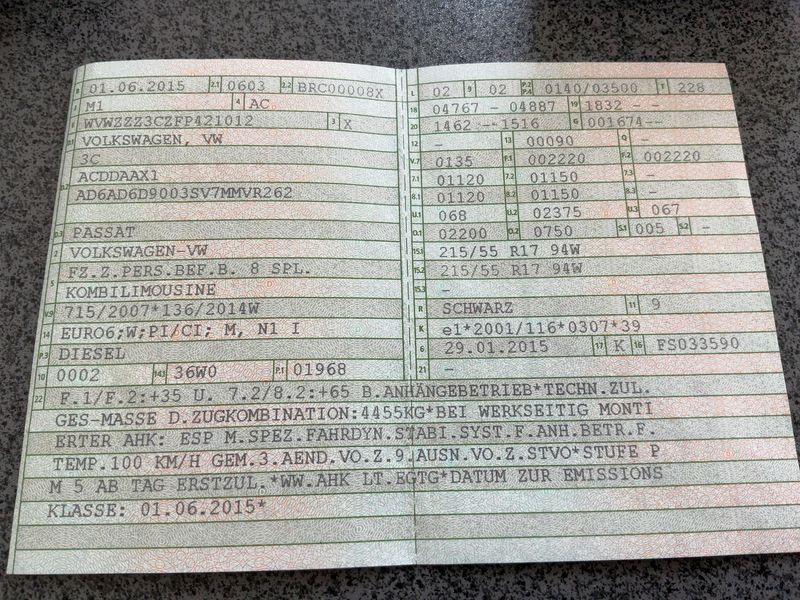 B 01.06.2015 2.1 0603 2.2 BRC00008X
J M1 4 AC
E WVWZZZ3CZFP421012 3 X
D.1 VOLKSWAGEN, VW
3C
D.2 ACDDAAX1
AD6AD6D9003SV7MMVR262
D.3 PASSAT
2 VOLKSWAGEN-VW
5 FZ.Z.PERS.BEF.B. 8 SPL.
KOMBILIMOUSINE
V.9 715/2007*136/2014W
14 EURO6;W;PI/CI; M, N1 I
P.3 DIESEL
10 0002 14.1 36W0 P.1 01968
L 02 9 02 P.2 P.4 0140/03500 T 228
18 04767 - 04887 19 1832 - -
20 1462 --1516 G 001674--
12 - 13 00090 Q -
V.7 0135 F.1 002220 F.2 002220
7.1 01120 7.2 01150 7.3 -
8.1 01120 8.2 01150 8.3 -
U.1 068 U.2 02375 U.3 067
O.1 02200 O.2 0750 S.1 005 S.2 -
15.1 215/55 R17 94W
15.2 215/55 R17 94W
15.3 -
R SCHWARZ 11 9
K e1*2001/116*0307*39
6 29.01.2015 17 K 16 FS033590
21 -
22 F.1/F.2:+35 U. 7.2/8.2:+65 B.ANHÄNGEBETRIEB*TECHN.ZUL.
GES-MASSE D.ZUGKOMBINATION:4455KG*BEI WERKSEITIG MONTI
ERTER AHK: ESP M.SPEZ.FAHRDYN.STABI.SYST.F.ANH.BETR.F.
TEMP.100 KM/H GEM.3.AEND.VO.Z.9.AUSN.VO.Z.STVO*STUFE P
M 5 AB TAG ERSTZUL.*WW.AHK LT.EGTG*DATUM ZUR EMISSIONS
KLASSE: 01.06.2015*